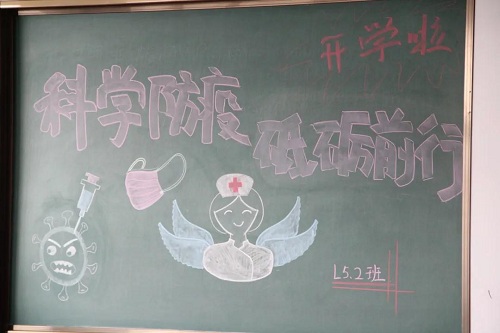 开学啦
科学防疫
砥砺前行
L5.2班